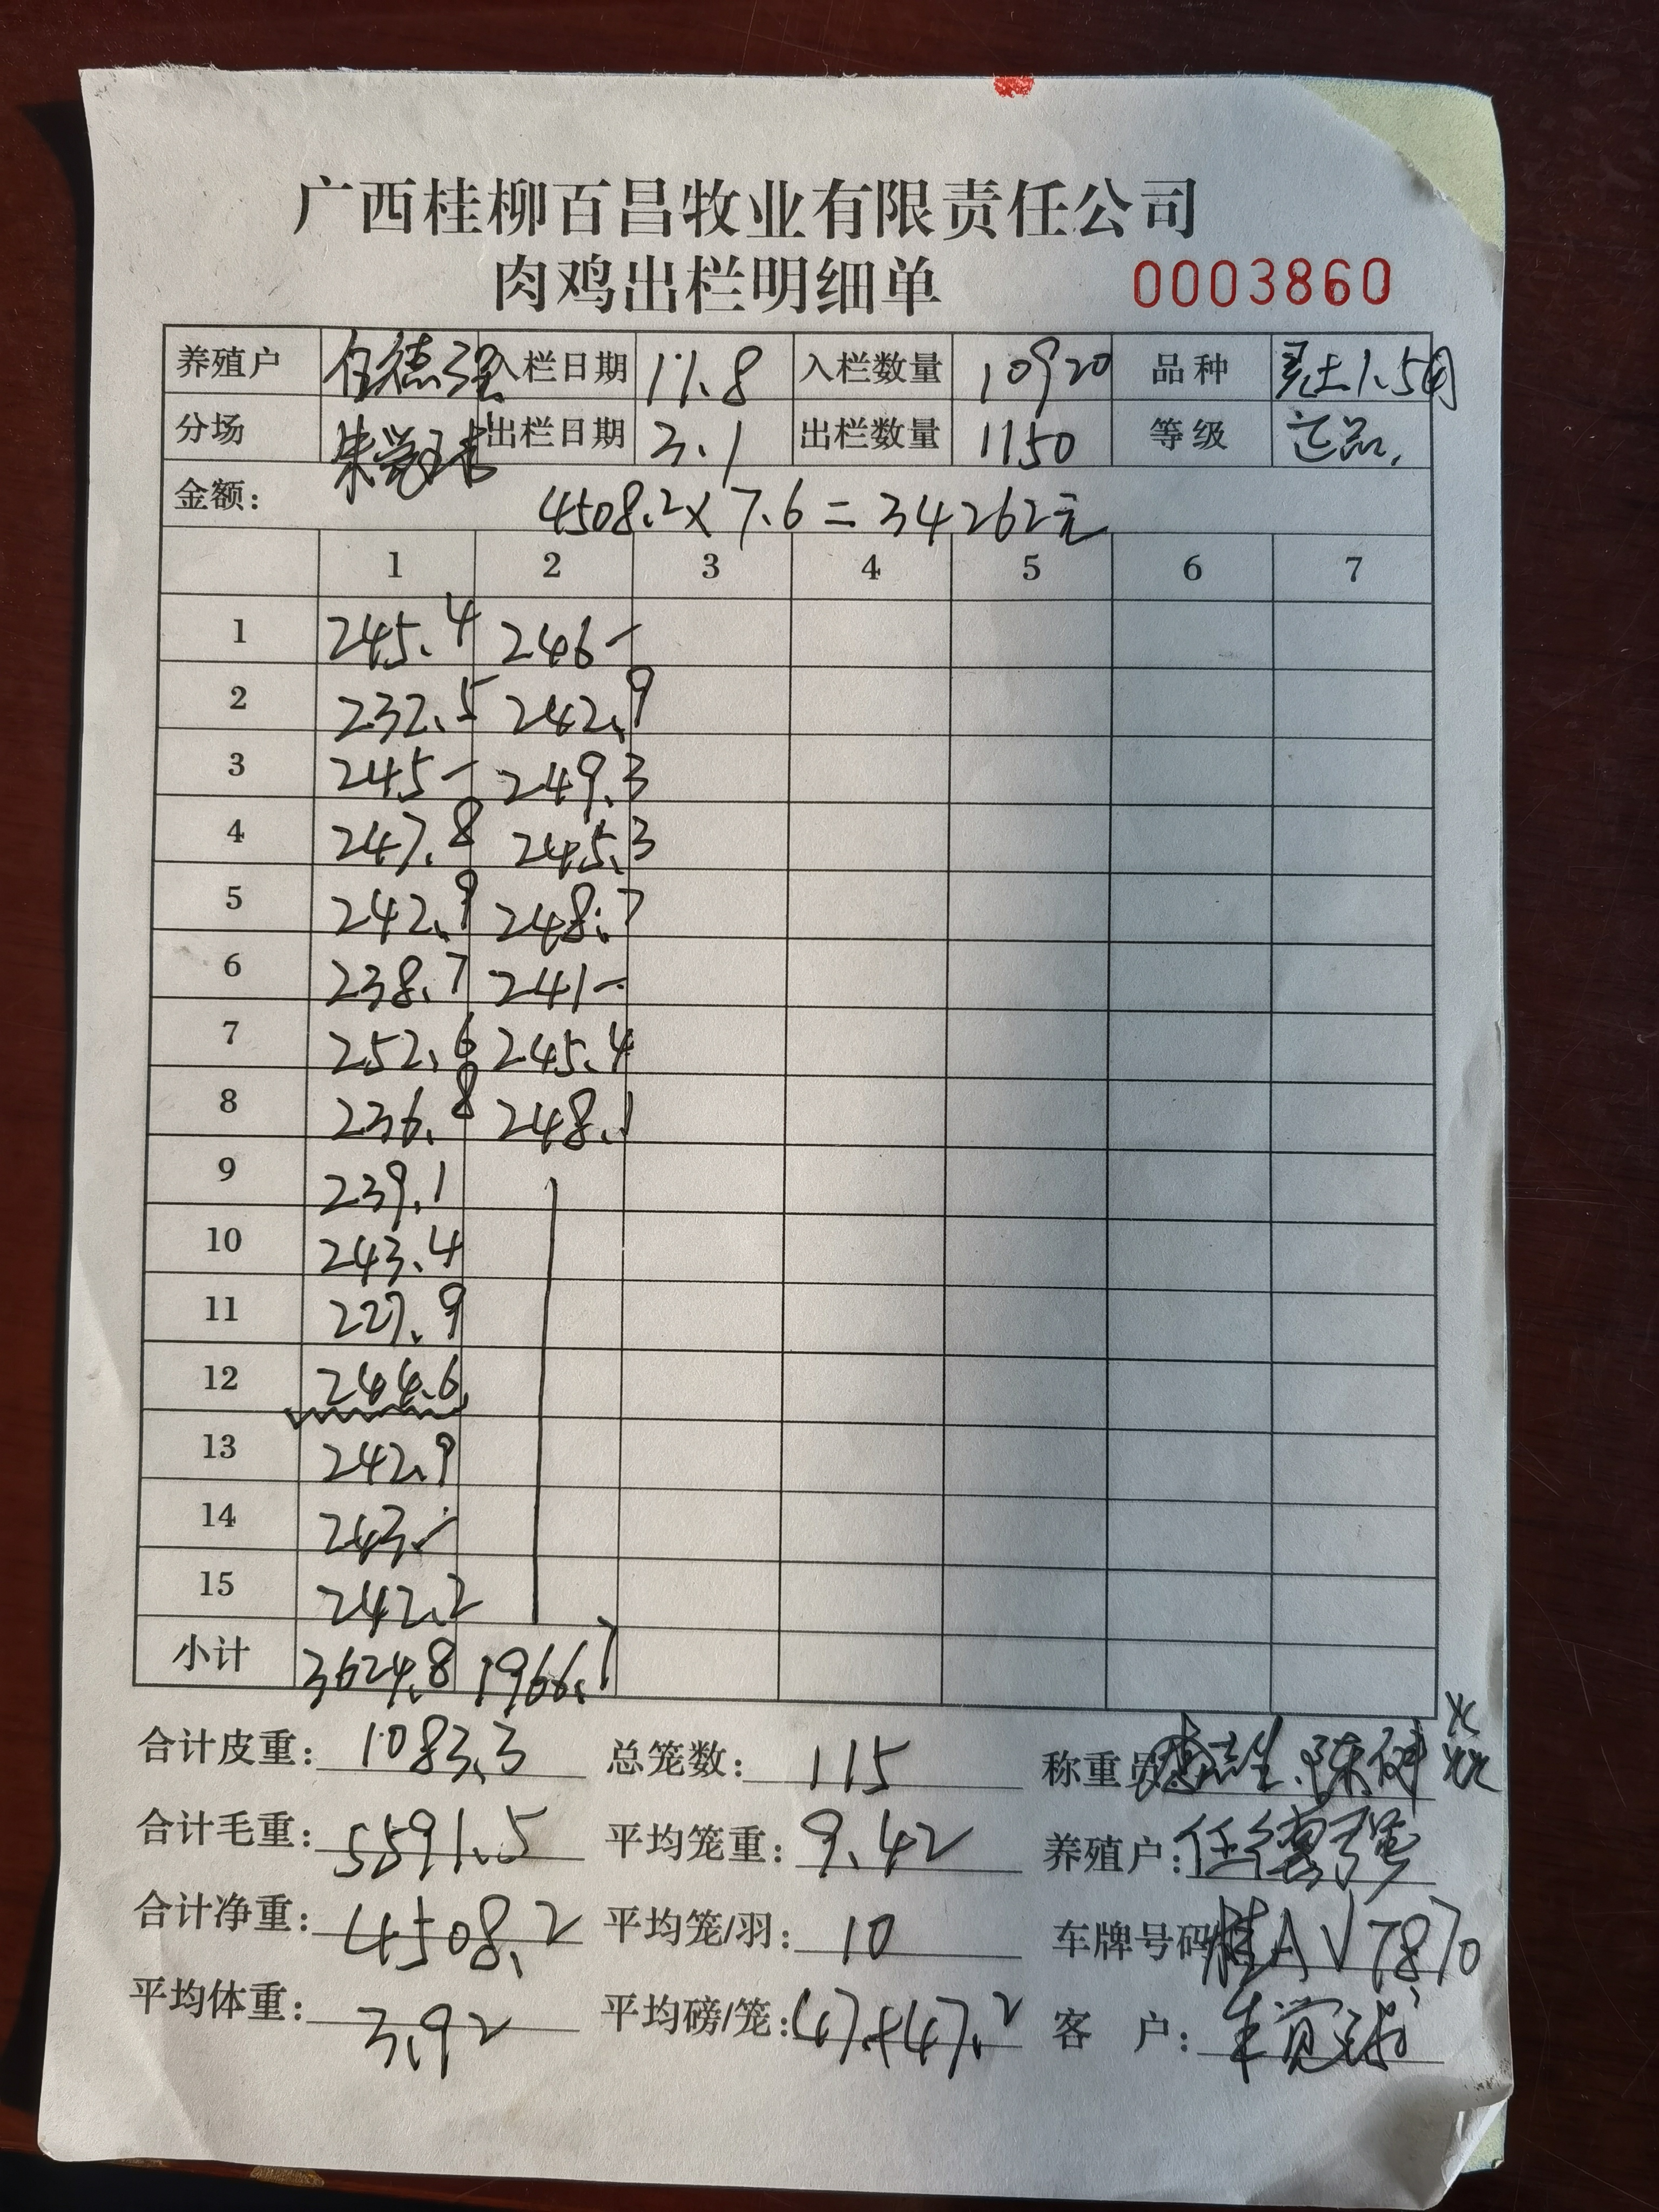 广西桂柳百昌牧业有限责任公司
肉鸡出栏明细单 0003860
养殖户 任德强 入栏日期 11.8 入栏数量 10920 品种 土1.5
分场 出栏日期 3.1 出栏数量 1150 等级 正品.
金额: 4508.2×7.6=34262元
1 2 3 4 5 6 7
1 245.4 246-
2 232.5 242.9
3 245- 249.3
4 247.8 245.3
5 242.9 248.7
6 238.7 241-
7 252.6 245.4
8 236.8 248.1
9 239.1
10 243.4
11 227.9
12 244.6
13 242.9
14 243.-
15 242.2
小计 3624.8 1966.7
合计皮重: 1083.3 总笼数: 115 称重员
合计毛重: 5591.5 平均笼重: 9.42 养殖户: 任德强
合计净重: 4508.2 平均笼/羽: 10 车牌号码 桂AV7870
平均体重: 3.92 平均磅/笼: 47+47.2 客 户: